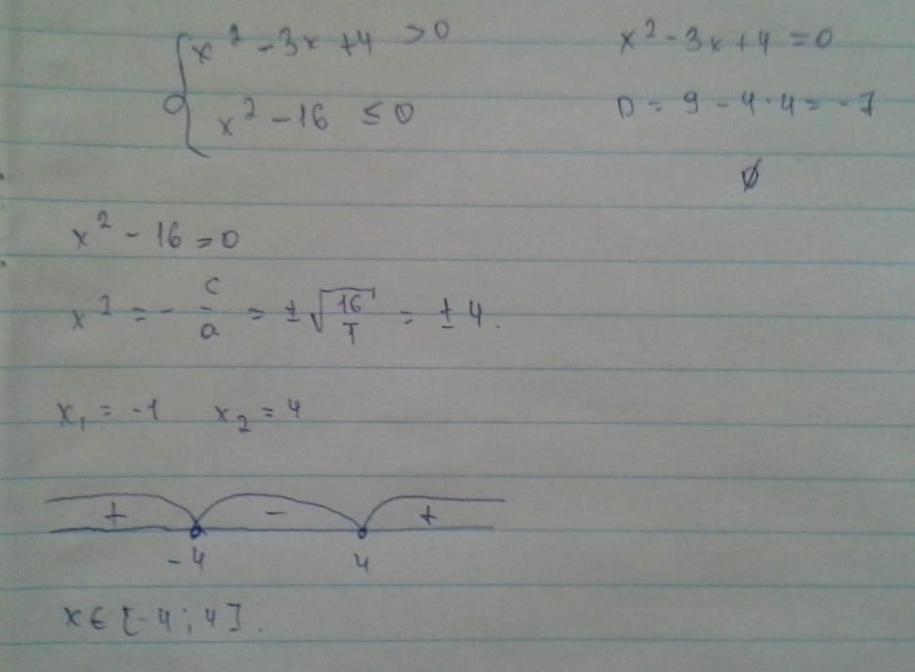 x² - 3x + 4 > 0
x² - 16 ≤ 0
x² - 3x + 4 = 0
D = 9 - 4·4 = -7
∅
x² - 16 = 0
x² = - c/a = ±√(16/1) = ± 4.
x₁ = -1 x₂ = 4
+ - +
-4 4
x ∈ [-4; 4].